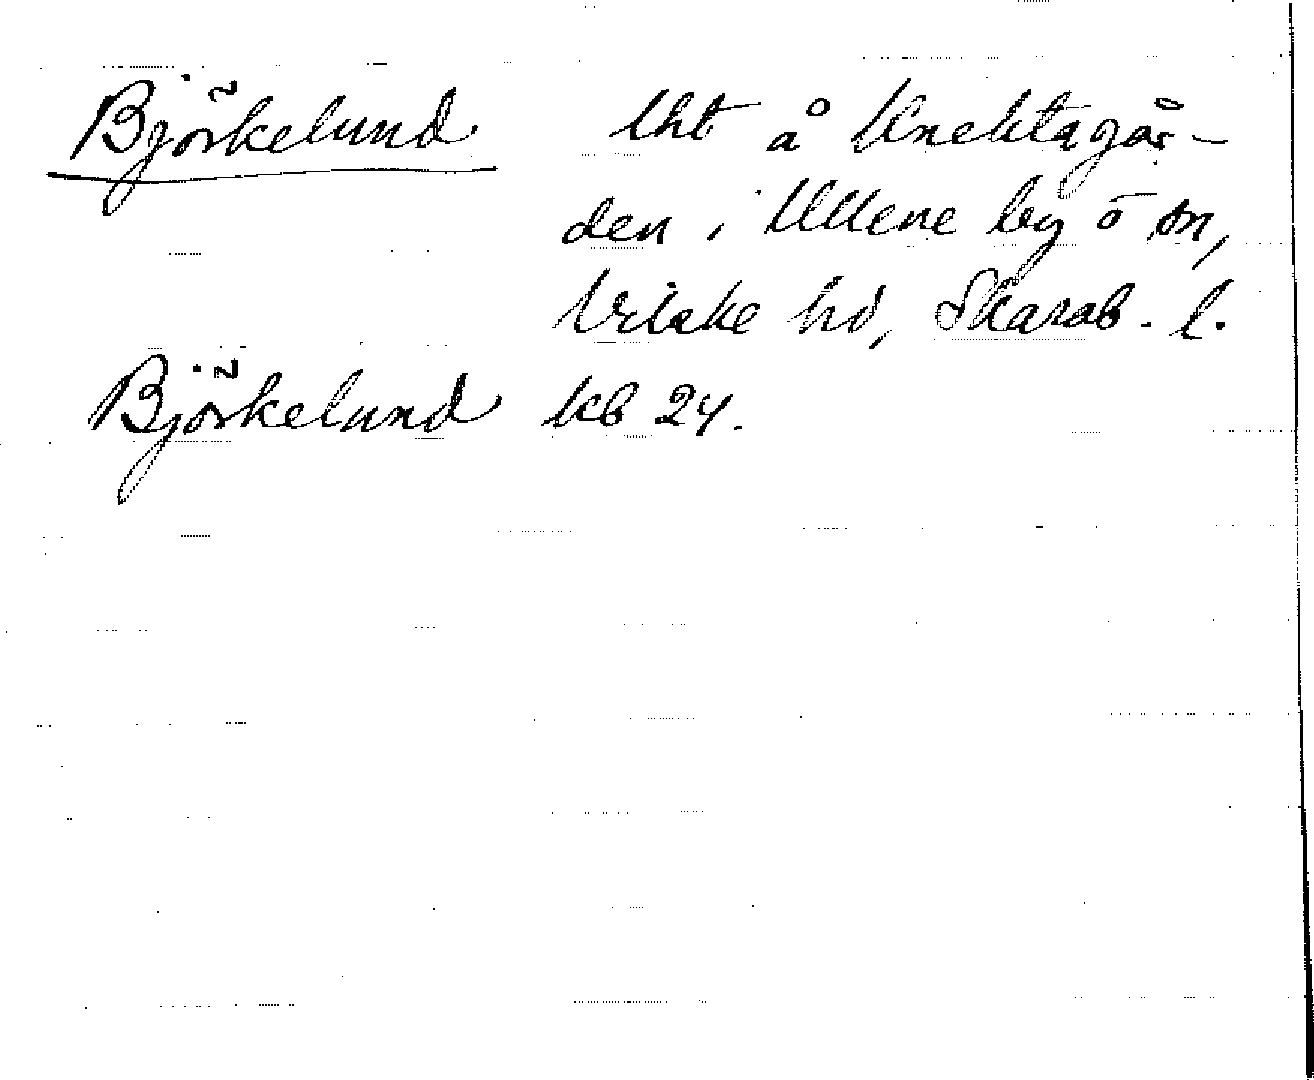 Björkelund lht å Knektagår-
den i Ullene by o sn,
Vilske hd, Skarab. l.
Björkelund kb 24.